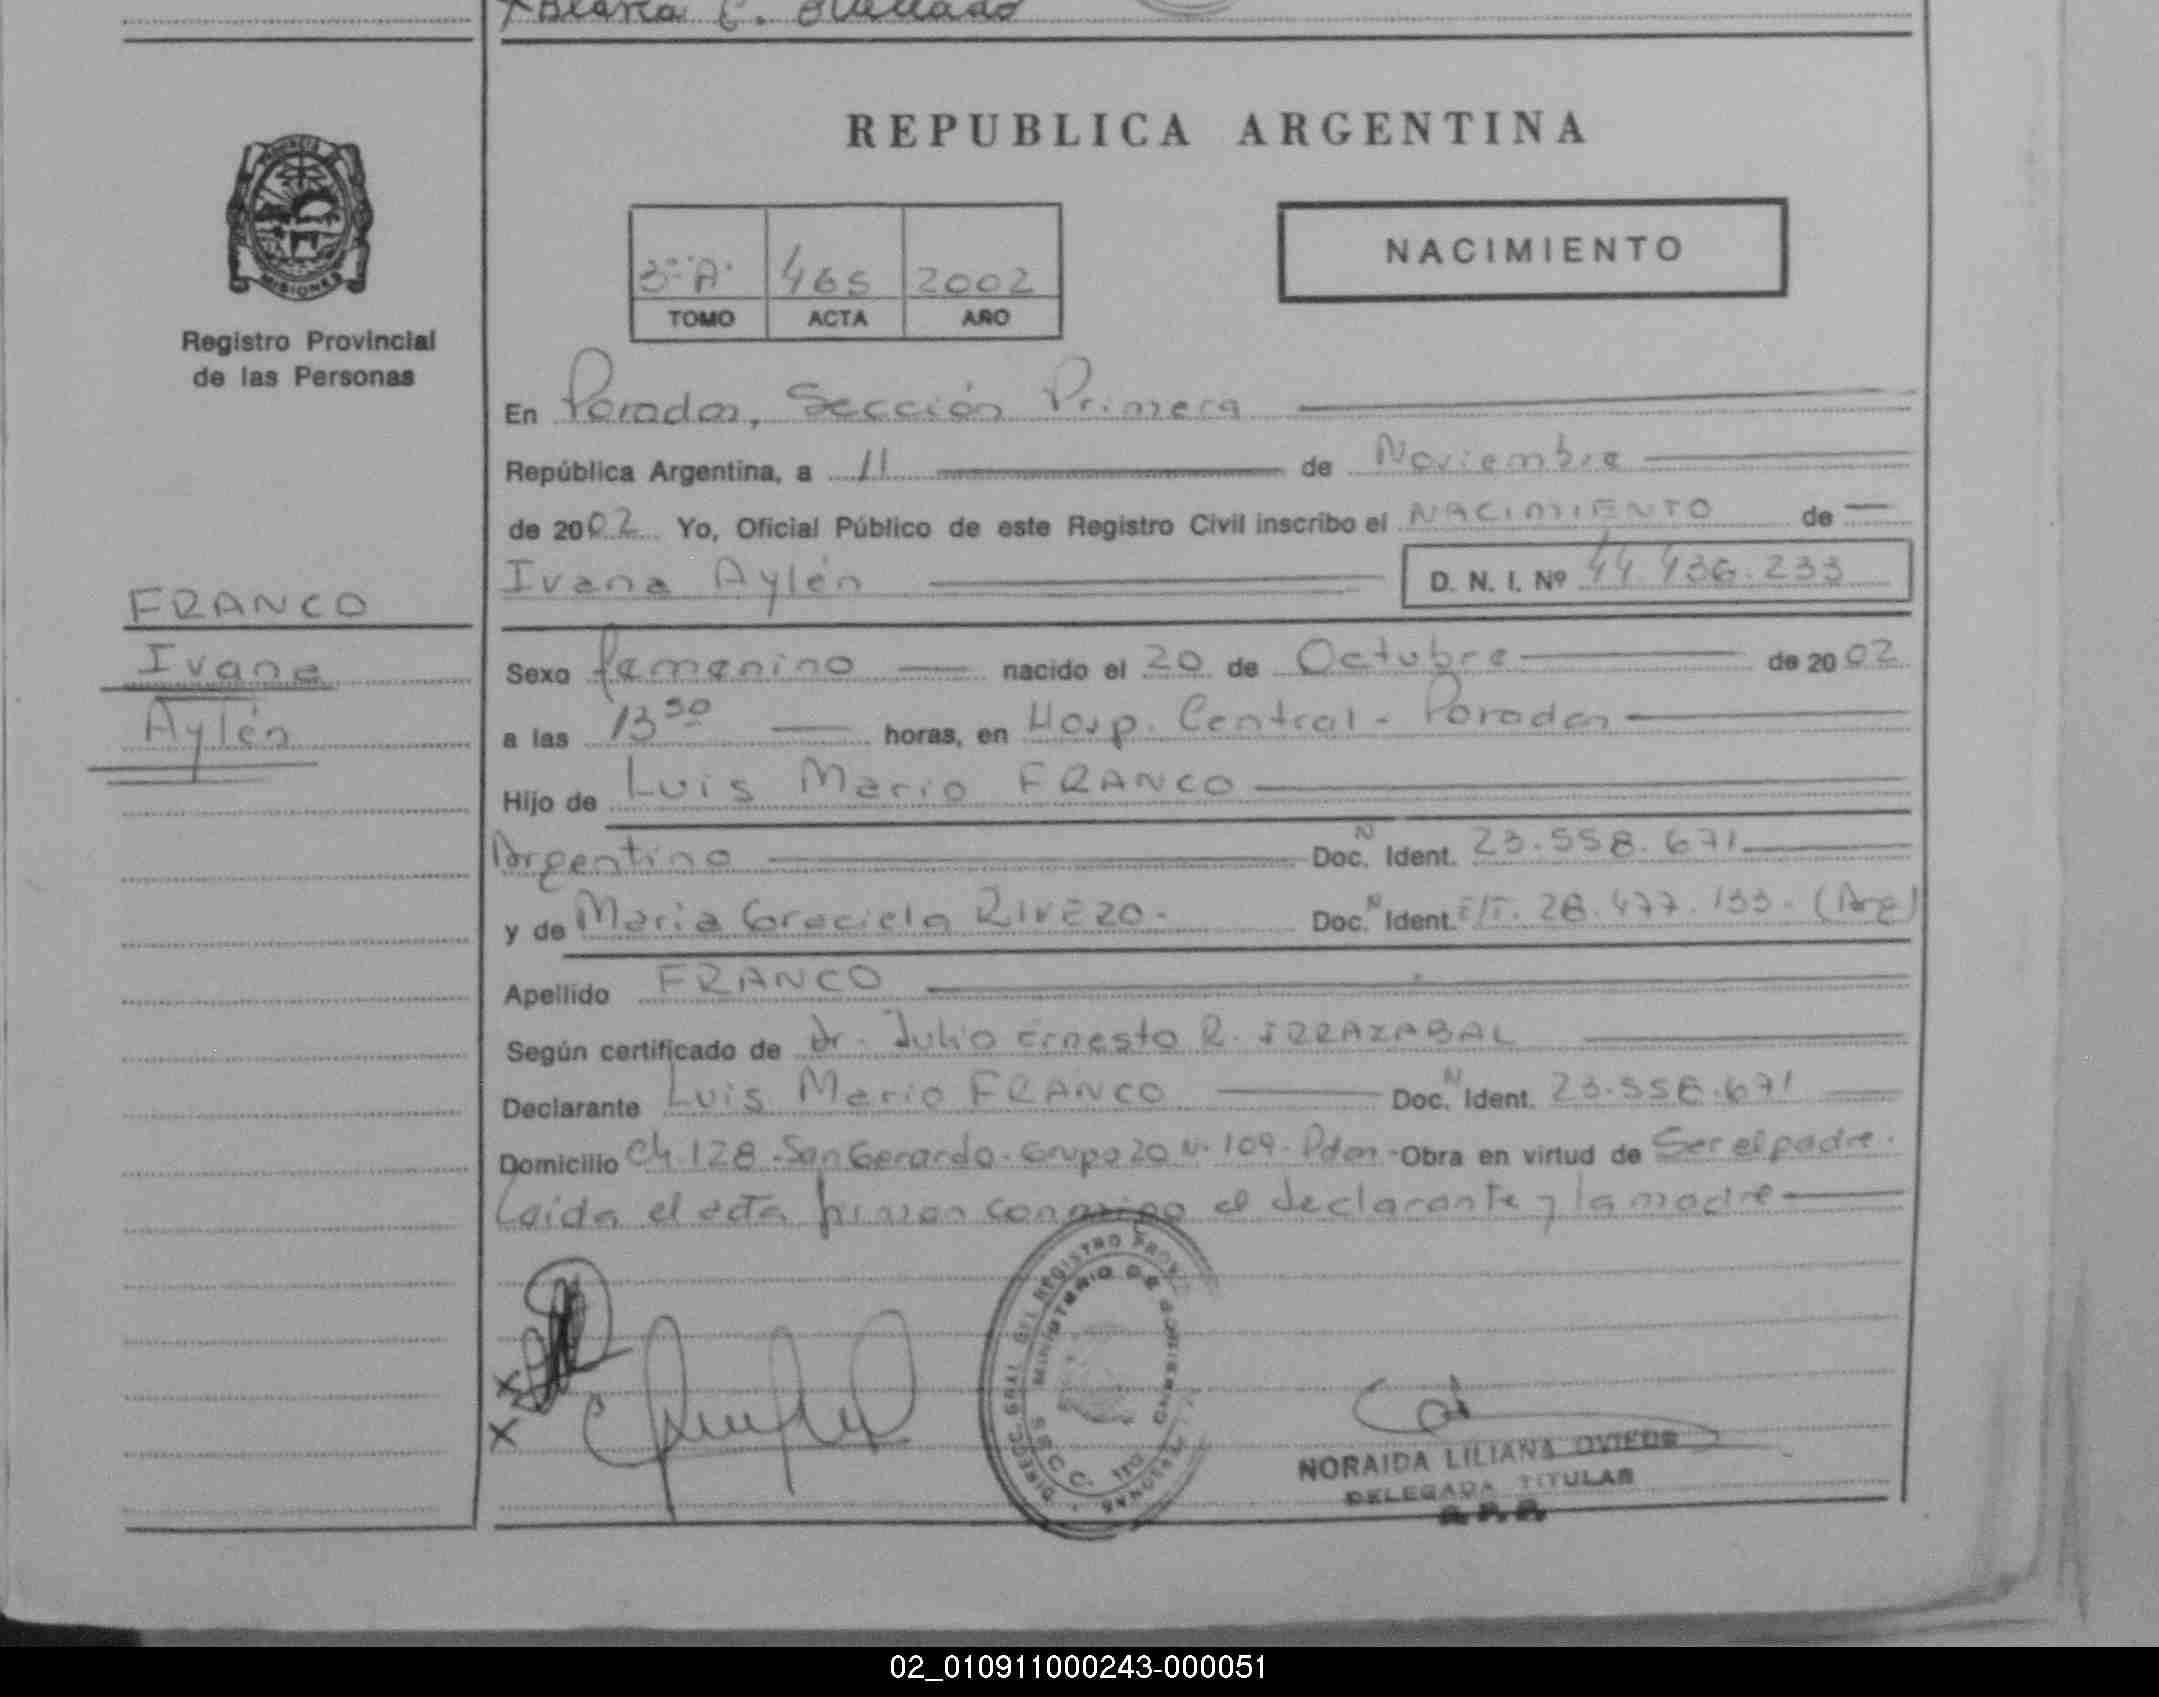 Blanca C.
REPUBLICA ARGENTINA
PROVINCIA
MISIONES
3º "A" 465 2002
TOMO ACTA AÑO
NACIMIENTO
Registro Provincial
de las Personas
En Posadas, Sección Primera
República Argentina, a 11 de Noviembre
de 2002 Yo, Oficial Público de este Registro Civil inscribo el NACIMIENTO de
Ivana Aylén D. N. I. Nº 44.436.233
FRANCO
Ivana
Aylén
Sexo femenino nacido el 20 de Octubre de 2002
a las 13 50 horas, en Hosp. Central - Posadas
Hijo de Luis Mario FRANCO
Argentino Doc. N Ident. 23.558.671
y de Maria Graciela RIVERO. Doc. N Ident. E/T. 28.477.133. (Arg)
Apellido FRANCO
Según certificado de Dr. Julio Ernesto R. IRRAZABAL
Declarante Luis Mario FRANCO Doc. N Ident. 23.558.671
Domicilio Ch. 128 - San Gerardo - Grupo 20 N. 109 - Pdas - Obra en virtud de Ser el padre.
Leida el acta firman conmigo el declarante y la madre
DIRECC. GRAL. DEL REGISTRO PROV. PERSONAS
MINISTERIO DE GOBIERNO
X
X
NORAIDA LILIANA OVIEDO
DELEGADA TITULAR
R. P. P.
02_010911000243-000051